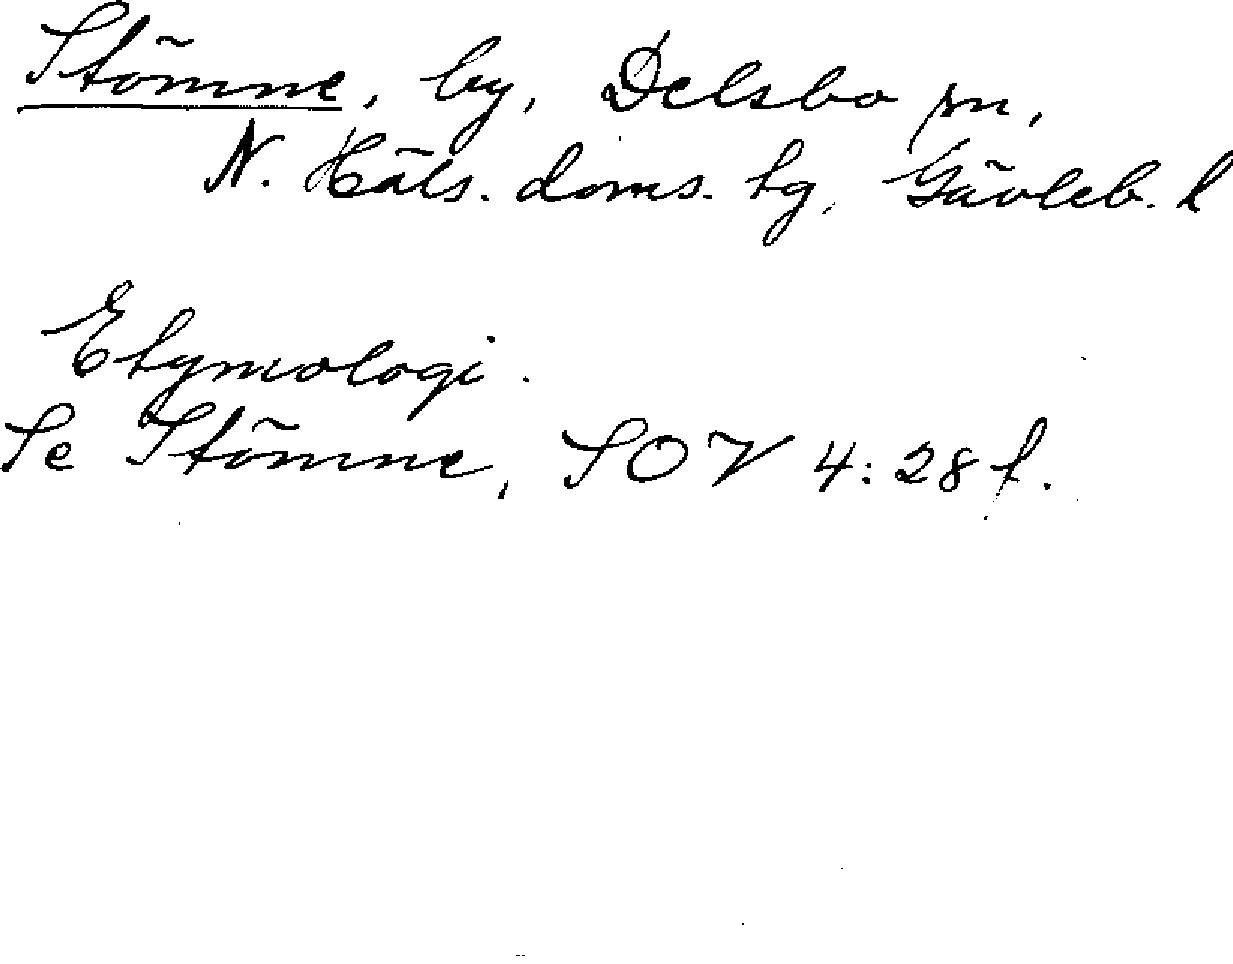 Stömne, by, Delsbo sn,
N. Häls. doms. tg, Gävleb. l
Etymologi.
Se Stömne, SOV 4: 28 f.